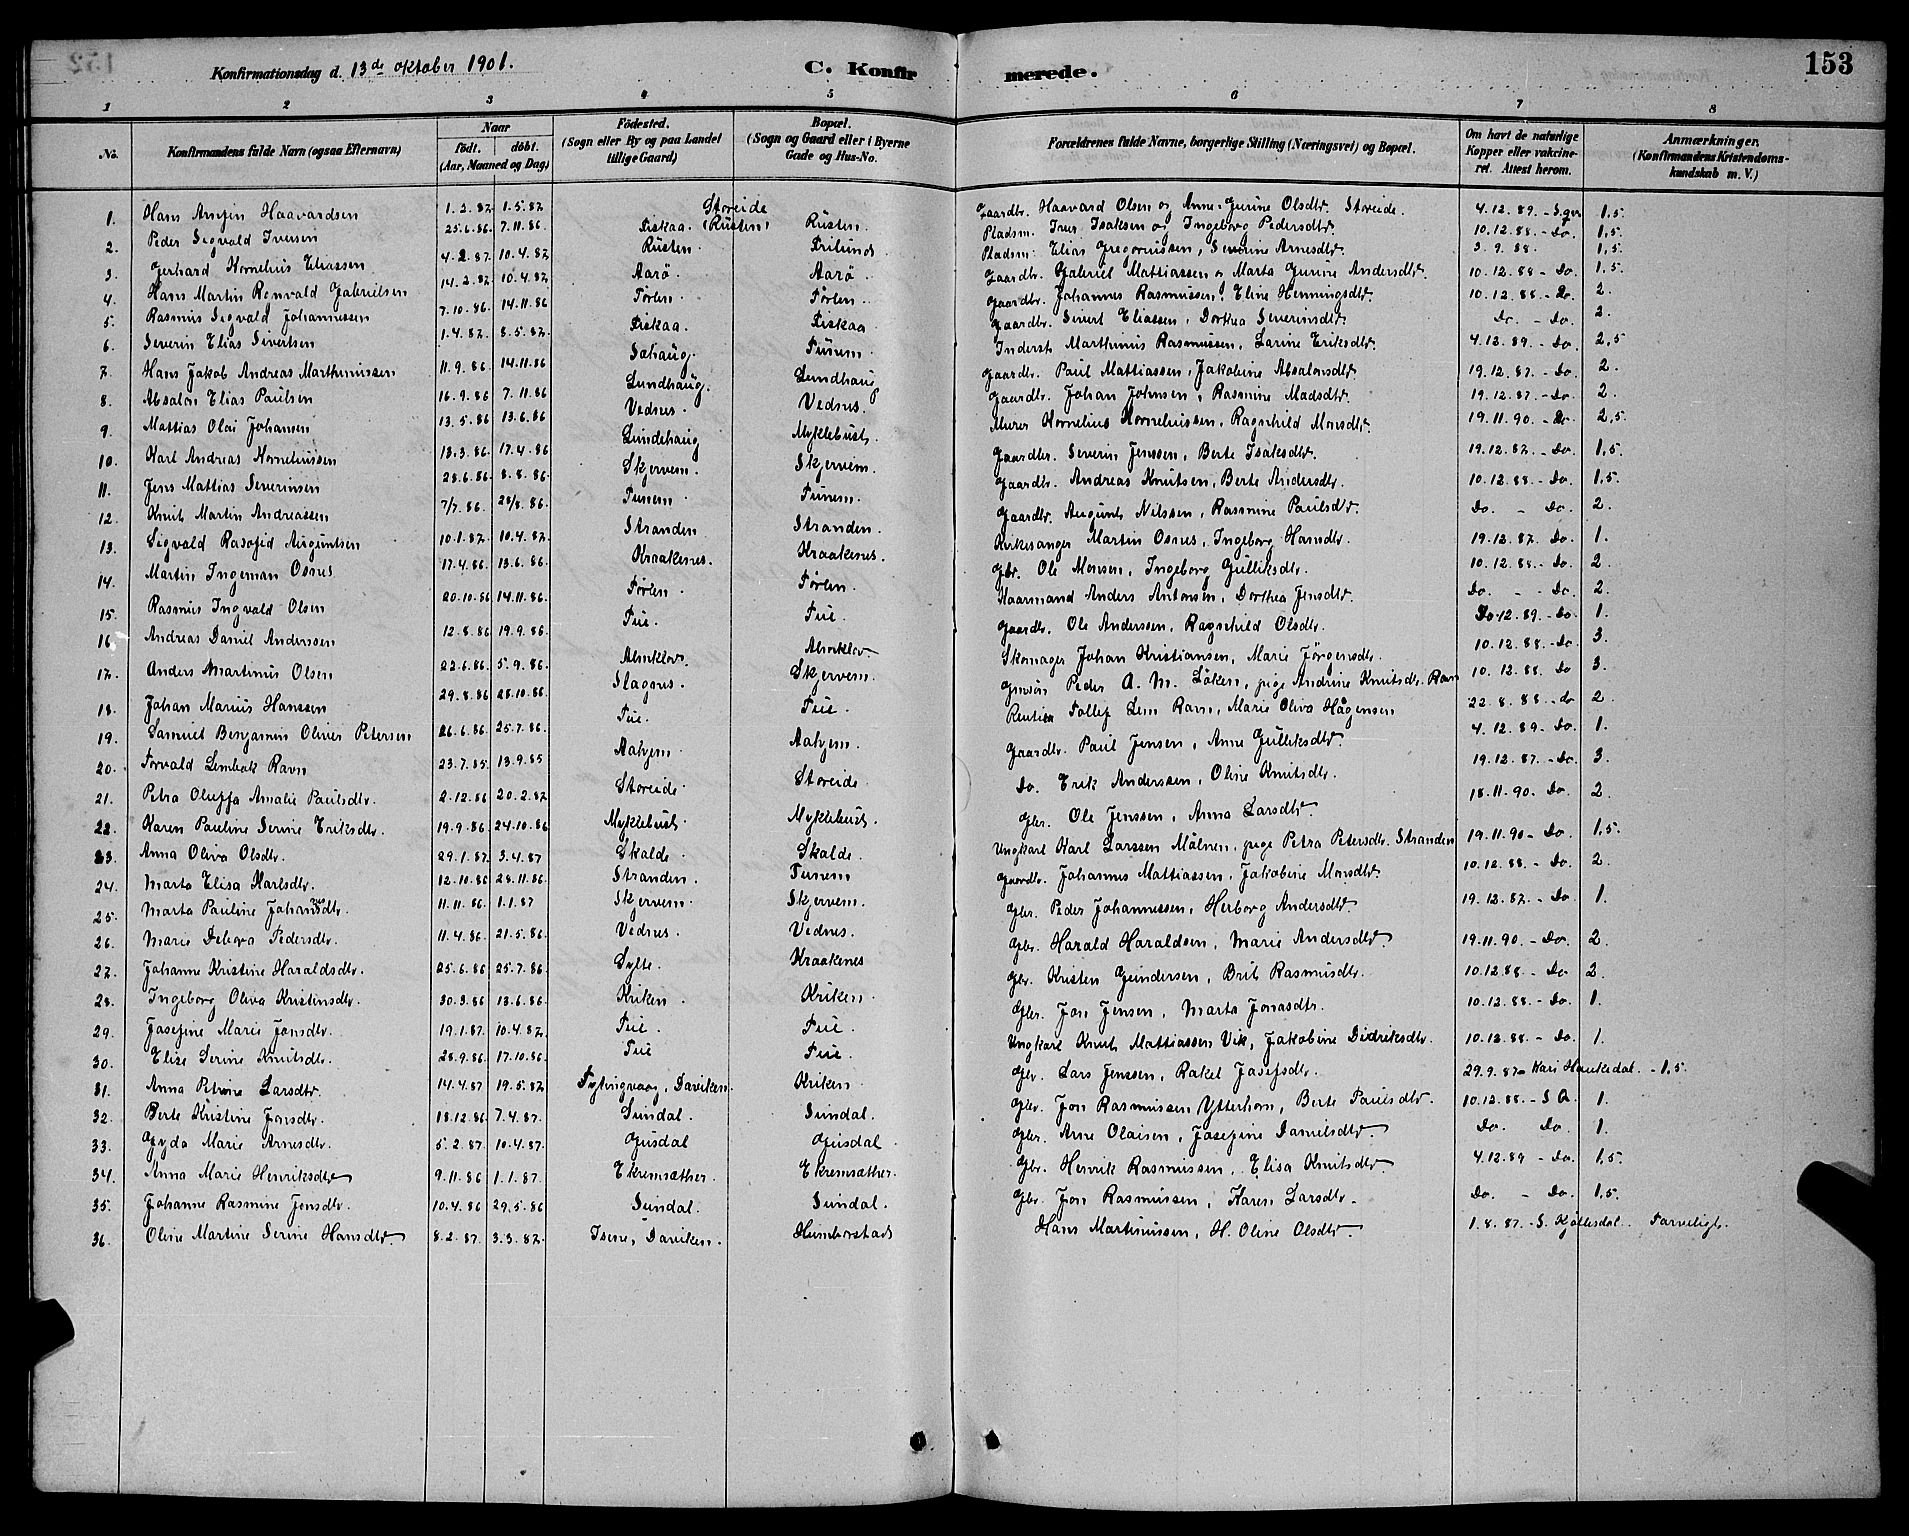 Konfirmationsdag d. 13de oktober 1901. C. Konfirmerede. 153
1 2 3 4 5 6 7 8
No. Konfirmandens fulde Navn (ogsaa Efternavn) Naar födt. döbt. (Aar, Maaned og Dag) Födested. (Sogn eller By og paa Landet tillige Gaard) Bopæl. (Sogn og Gaard eller i Byerne Gade og Hus-No. Forældrenes fulde Navne, borgerlige Stilling (Næringsvei) og Bopæl. Om havt de naturlige Kopper eller vakcineret. Attest herom. Anmærkninger. (Konfirmandens Kristendomskundskab m. V.)
1. Hans Haavardsen 1.2.87 1.5.87 Storeide Gaardbr. Haavard Olsen og Anne Gurine Olsdtr. Storeide. 4.12.89 1,5.
2. Peder Sigvald Iversen 25.6.86. 7.11.86 Fiskaa (Rusten) Rusten. Pladsm. Iver Isaksen og Ingeborg Pedersdtr. 10.12.88 - Do. 1,5.
3. Gerhard Kornelius Eliassen 4.2.87 10.4.87 Rusten. Pladsm. Elias Gregoriussen, Severine Arnesdtr. 3.9.88. 1,5.
4. Hans Martin Ronvald Gabrielsen 14.2.87 10.4.87 Aarö. Aarö. Gaardbr. Gabriel Mattiassen og Marta Gurine Andersdtr. 10.12.88 - Do. 1,5.
5. Rasmus Sigvald Johannessen 7.10.86. 14.11.86 Törlen. Törlen. Gaardbr. Johannes Rasmussen, Eline Henningsdtr. 10.12.88 - Do. 2.
6. Severin Elias Sivertsen 1.4.87. 8.5.87. Fiskaa. Fiskaa. Gaardbr. Sivert Eliassen, Dorthea Severinsdtr. Do. - Do. 2.
7. Hans Jakob Andreas Marthinussen 11.9.86 14.11.86 Sahaug. Tunem. Inderst Marthinus Rasmussen, Larine Eriksdtr. 4.12.89. - Do. 2,5
8. Absalon Elias Paulsen 16.9.86 7.11.86 Lundhaug. Lundhaug Gaardbr. Paul Mattiassen, Jakobine Absalonsdtr. 19.12.87. - Do. 2.
9. Mattias Olai Johansen 13.5.86 13.6.86 Vednes. Vednes. Gaardbr. Johan Johnsen, Rasmine Madsdtr. 19.12.87. - Do. 2.
10. Karl Andreas Korneliussen 13.3.86. 17.4.86 Lundehaug Myklebust. Murer Kornelius Korneliussen, Ragnhild Monsdtr. 19.11.90 - Do. 2,5.
11. Jens Mattias Severinsen 28.6.86. 8.8.86. Skjervem. Skjervem. Gaardbr. Severin Jenssen, Berte Isaksdtr. 19.12.87. - Do. 1,5.
12. Knut Martin Andreassen 7/7.86. 28/8.86 Tunem. Tunem. Gaardbr. Andreas Knutsen, Berte Andersdtr. 10.12.88. - Do. 1,5.
13. Sigvald Augustsen 10.1.87. 10.4.87. Stranden Stranden. Gaardbr. August Nilssen, Rasmine Paulsdtr. Do. - Do. 2.
14. Martin Ingeman Osnes 17.4.86 13.6.86. Kraakenes. Kraakenes. Kirkesanger Martin Osnes, Ingeborg Hansdtr. 19.12.87. Do. 1.
15. Rasmus Ingvald Olsen 20.10.86 14.11.86. Törlen. Törlen. Gbr. Ole Monsen, Ingeborg Gulliksdtr. 10.12.88. - Do. 2.
16. Andreas Daniel Anderssen 12.8.86 19.9.86. Tue. Tue. Haarmand Anders Antonsen, Dorthea Jensdtr. Do. - Do. 2.
17. Anders Martinus Olsen 22.6.86. 5.9.86. Almklov. Almklov. Gaardbr. Ole Anderssen, Ragnhild Olsdtr. Do. 12.89. - Do. 1.
18. Johan Marius Hanssen 29.8.86 28.10.86. Slagnes. Skjervem. Skomager Johan Kristiansen, Marie Jörgensdtr. 10.12.88. - Do. 3.
19. Samuel Benjamin Oliver Petersen 26.6.86. 25.7.86. Tue. Tue. Peder A. M. Löken, pige Andrine Knutsdtr. Ravn 10.12.88. Do 3.
20. Torvald Lembak Ravn 23.7.85. 13.9.85 Aahjem. Aahjem. Tollef Lem Ravn, Marie Oliva Hågensen 22.8.88. - Do 2
21. Petra Oluffa Amalie Paulsdtr. 2.12.86 20.2.87 Storeide. Storeide Gaardbr. Paul Jensen, Anne Gulliksdtr. 4.12.89 - Do 1.
22. Karen Pauline Serine Eriksdtr. 19.9.86 24.10.86 Myklebust. Myklebust. Do. Erik Anderssen, Oline Knutsdtr. 19.12.87. - Do. 3.
23. Anna Oliva Olsdtr. 29.1.87. 3.4.87 Skalde. Skalde. Gbr. Ole Jenssen, Anna Larsdtr. 18.11.90. Do. 2.
24. Marta Elisa Karlsdtr. 12.10.86 28.11.86. Stranden. Tunem Ungkarl Karl Larssen Mälnen, pige Petra Petersdtr. Stranden 19.11.90 - Do. 1,5.
25. Marta Pauline Johansdtr. 11.11.86. 1.1.87 Skjervem. Skjervem. Gaardbr. Johannes Mattiassen, Jakobine Monsdtr. 10.12.88. - Do. 2.
26. Marie Debora Pedersdtr. 11.4.86. 21.5.86. Vednes. Vednes. Gbr. Peder Johannessen, Herborg Andersdtr. 19.12.87. - Do. 1.
27. Johanne Kristine Haraldsdtr. 25.6.86 25.7.86. Sylte. Kraakenes Gbr. Harald Haraldsen, Marie Andersdtr. 19.11.90. - Do. 2.
28. Ingeborg Oliva Kristensdtr. 30.3.86 13.6.86. Kriken. Kriken. Gbr. Kristen Gundersen, Brit Rasmusdtr. 10.12.88. - Do 2.
29. Josefine Marie Jonsdtr. 19.1.87. 10.4.87. Tue. Tue. Gbr. Jon Jensen, Marta Jonasdtr. 10.12.88. - Do. 1.
30. Elise Serine Knutsdtr. 28.9.86 17.10.86. Tue Tue. Ungkarl Knut Mattiassen Vik, Jakobine Didriksdtr. 10.12.88 - Do. 1.
31. Anna Petrine Larsdtr. 14.4.87 19.5.87 Daviken. Kriken. Gbr. Lars Jenssen, Rakel Josefsdtr. 29.9.87 - Kari Haukedal. - 1,5.
32. Berte Kristine Jonsdtr. 18.12.86 7.4.87. Sundal. Sundal. Gbr. Jon Rasmussen Ytterhorn, Berte Paulsdtr. 10.12.88. - S. A. 1.
33. Gyda Marie Arnesdtr. 5.2.87. 10.4.87. Gusdal Gusdal Gbr. Arne Olaisen, Josefine Danielsdtr. Do. Do. 1.
34. Anna Marie Henriksdtr 9.11.86 1.1.87. Ekremsæther. Ekremsæther. Gbr. Henrik Rasmussen, Elisa Knutsdtr. 4.12.89 - Do. 1,5.
35. Johanne Rasmine Jonsdtr. 10.4.86 29.5.86 Sundal. Sundal. Gbr. Jon Rasmussen, Karen Larsdtr. Do. - Do. 1,5.
36. Oline Martine Serine Hansdtr. 8.2.87. 3.3.87. Isene, Daviken. Humborstad Hans Martinussen, H. Oline Olsdtr. 1.8.87. - S. Kjølesdal. Farveligt.